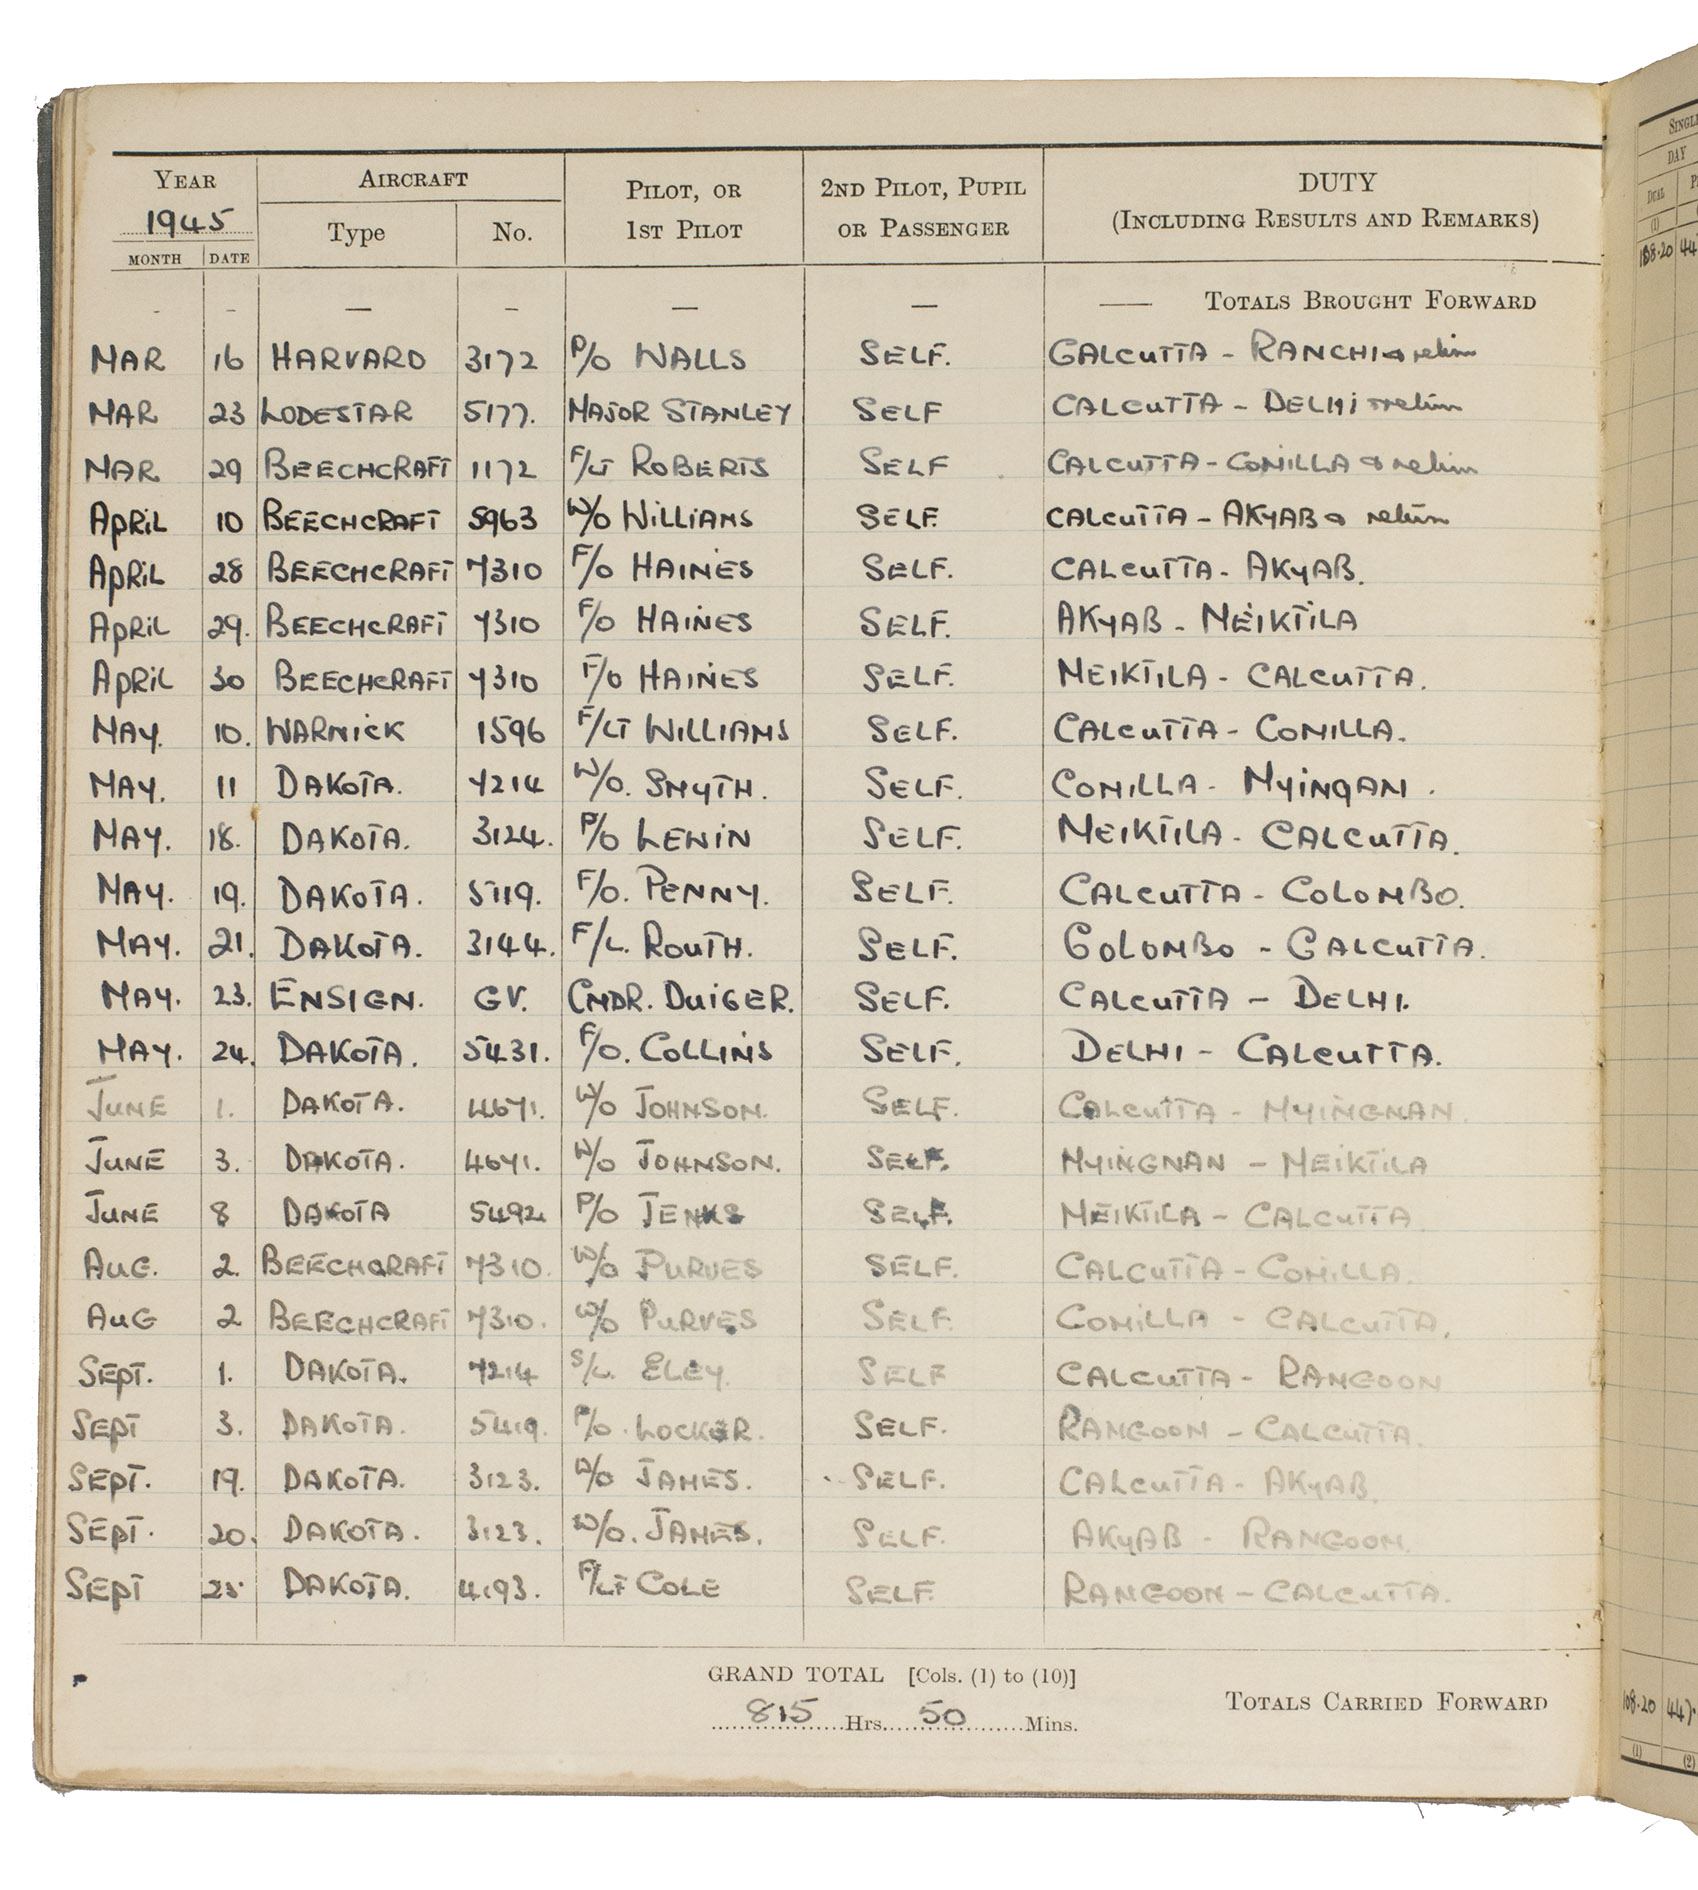 YEAR AIRCRAFT PILOT, OR 2ND PILOT, PUPIL DUTY
1945 Type No. 1ST PILOT OR PASSENGER (INCLUDING RESULTS AND REMARKS)
MONTH DATE
- - — - — — —— TOTALS BROUGHT FORWARD
MAR 16 HARVARD 3172 P/O WALLS SELF. CALCUTTA - RANCHI & return
MAR 23 LODESTAR 5177. MAJOR STANLEY SELF CALCUTTA - DELHI & return
MAR 29 BEECHCRAFT 1172 F/LT ROBERTS SELF CALCUTTA - COMILLA & return
APRIL 10 BEECHCRAFT 5963 W/O WILLIAMS SELF. CALCUTTA - AKYAB & return
APRIL 28 BEECHCRAFT 7310 F/O HAINES SELF. CALCUTTA - AKYAB.
APRIL 29. BEECHCRAFT 7310 F/O HAINES SELF. AKYAB - MEIKTILA
APRIL 30 BEECHCRAFT 7310 F/O HAINES SELF. MEIKTILA - CALCUTTA.
MAY. 10. WARWICK 1596 F/LT WILLIAMS SELF. CALCUTTA - COMILLA.
MAY. 11 DAKOTA. 7214 W/O. SMYTH. SELF. COMILLA - MYINGAN.
MAY. 18. DAKOTA. 3124. P/O LEWIN SELF. MEIKTILA - CALCUTTA.
MAY. 19. DAKOTA. 5119. F/O. PENNY. SELF. CALCUTTA - COLOMBO.
MAY. 21. DAKOTA. 3144. F/L. ROUTH. SELF. COLOMBO - CALCUTTA.
MAY. 23. ENSIGN. GV. CMDR. DUIGER. SELF. CALCUTTA - DELHI.
MAY. 24. DAKOTA. 5431. F/O. COLLINS SELF. DELHI - CALCUTTA.
JUNE 1. DAKOTA. 4671. W/O JOHNSON. SELF. CALCUTTA - MYINGNAN
JUNE 3. DAKOTA. 4671. W/O JOHNSON. SELF. MYINGNAN - MEIKTILA
JUNE 8 DAKOTA 5492. P/O JENKS SELF. MEIKTILA - CALCUTTA
AUG. 2. BEECHCRAFT 7310. W/O PURVES SELF. CALCUTTA - COMILLA.
AUG 2 BEECHCRAFT 7310. W/O PURVES SELF. COMILLA - CALCUTTA.
SEPT. 1. DAKOTA. 7214 S/L. ELEY. SELF CALCUTTA - RANGOON
SEPT 3. DAKOTA. 5419. P/O. LOCKER. SELF. RANGOON - CALCUTTA.
SEPT. 19. DAKOTA. 3123. W/O JAMES. SELF. CALCUTTA - AKYAB.
SEPT. 20. DAKOTA. 3123. W/O. JAMES. SELF. AKYAB - RANGOON.
SEPT 25 DAKOTA. 4193. F/LT COLE SELF. RANGOON - CALCUTTA.
GRAND TOTAL [Cols. (1) to (10)]
815 Hrs. 50 Mins. TOTALS CARRIED FORWARD
DAY
DUAL
(1)
108.20
108.20
(1) (2)